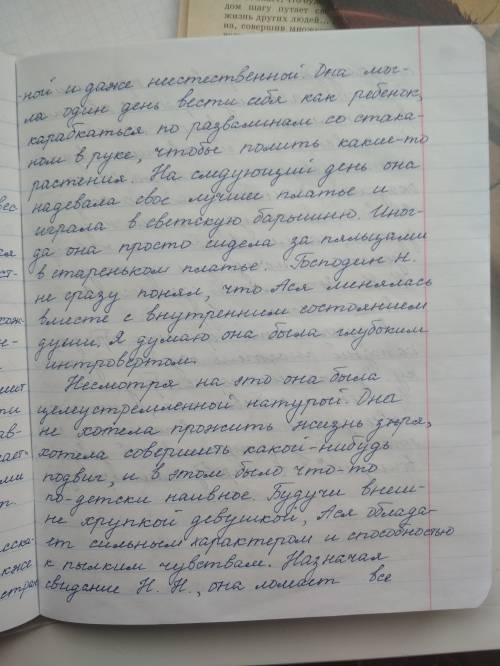 дом шагу путает
жизнь других людей...
на, совершив множе
-ной и даже неестественной. Она мог-
ла один день вести себя как ребенок,
карабкаться по развалинам со стака-
ном в руке, чтобы полить какие-то
растения. На следующий день она
надевала свое лучшее платье и
играла в светскую барышню. Иног-
да она просто сидела за пяльцами
в стареньком платье. Господин Н.
не сразу понял, что Ася менялась
вместе с внутренним состоянием
души. Я думаю она была глубоким
интровертом.
Несмотря на это она была
целеустремленной натурой. Она
не хотела прожить жизнь зазря,
хотела совершить какой-нибудь
подвиг, и в этом было что-то
по-детски наивное. Будучи внеш-
не хрупкой девушкой, Ася облада-
ет сильным характером и способностью
к пылким чувствам. Назначая
свидание Н. Н., она ломает все